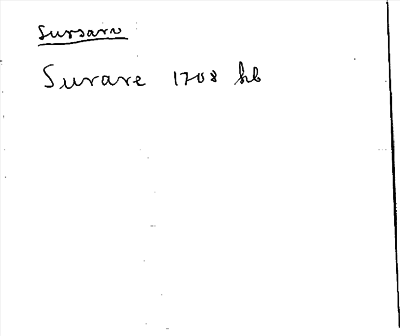 Sursare
Surare 1708 hb